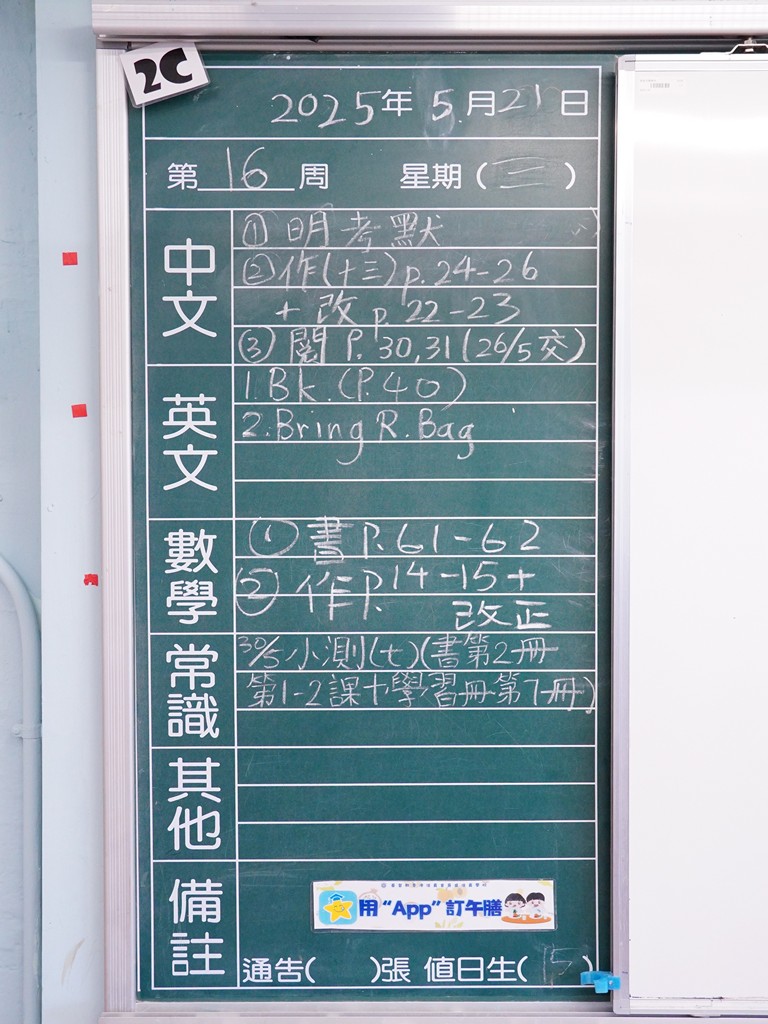 2C
2025年 5月21日
第 16 周 星期(三)
中文
① 明考默
② 作(十三)p.24-26
+ 改 p.22-23
③ 閱 P.30,31(26/5交)
英文
1. Bk.(P.40)
2. Bring R. Bag
數學
① 書 P.61-62
② 作 P.14-15+
改正
常識
30/5小測(七)(書第2冊
第1-2課+學習冊第7冊)
其他
備註
用 “App” 訂午膳
通告( )張 值日生( 15 )